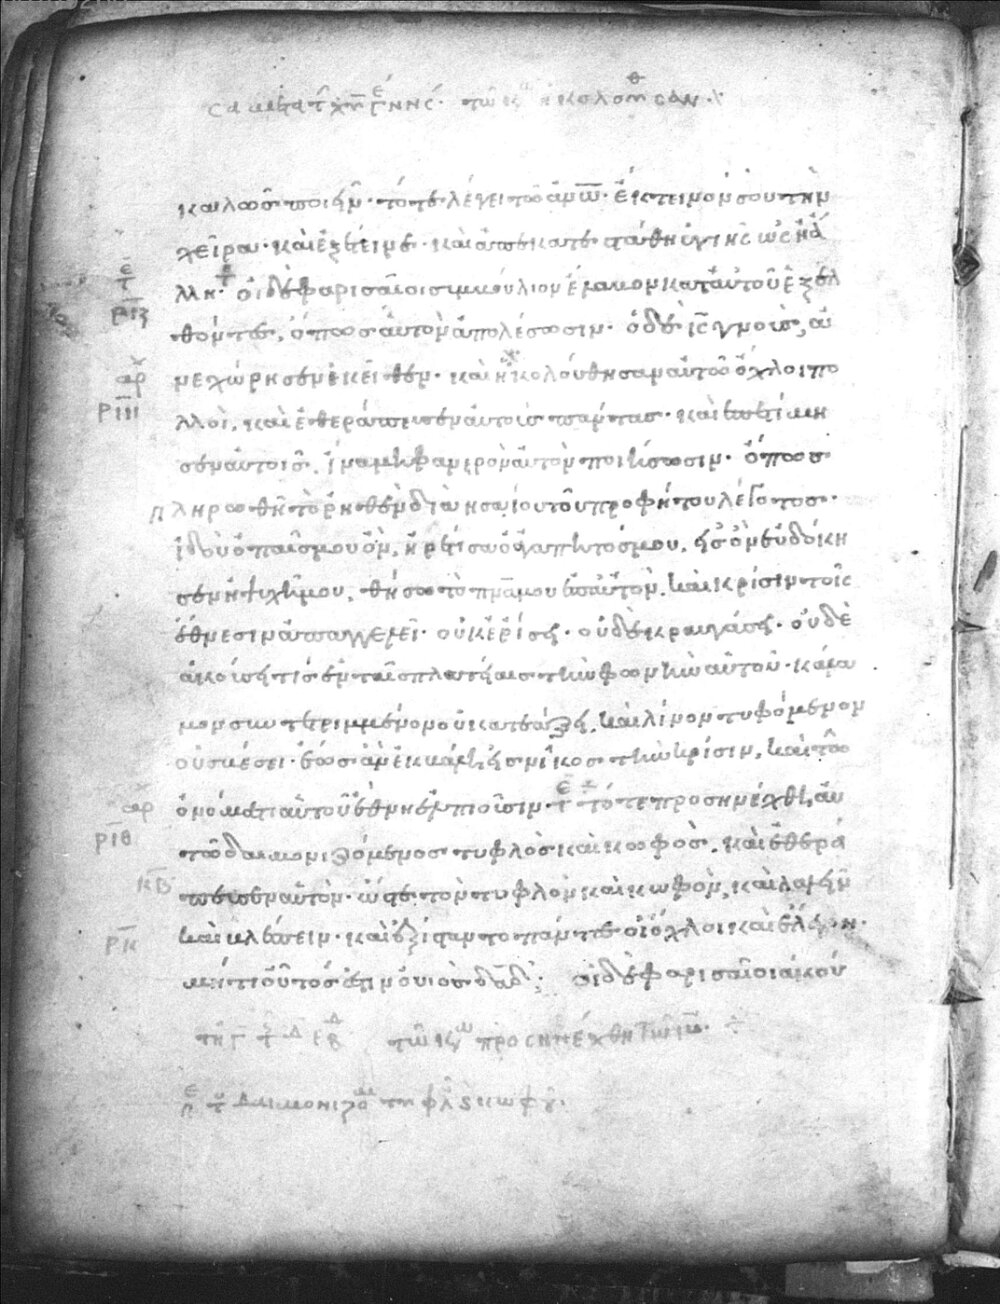 καλῶς ποιεῖν· τότε λέγει τῶ ἀνω· ἔκτεινόν σου τὴν
χεῖρα· καὶ ἐξέτεινε· καὶ ἀπεκατεστάθη ὑγιὴς ὡς ἡ ἄ
λλη· οἱ δὲ φαρισαῖοι συμβούλιον ἔλαβον κατ αὐτοῦ ἐξελ
θόντες, ὅπως αὐτὸν ἀπολέσωσιν· ὁ δὲ ις γνοὺς, ἀ
νεχώρησεν ἐκεῖθεν· καὶ ἠκολούθησαν αὐτῶ ὄχλοι πο
λλοὶ, καὶ ἐθεράπευσεν αὐτοὺς πάντας· καὶ ἐπετίμη
σεν αὐτοῖς, ἵνα μὴ φανερὸν αὐτὸν ποιήσωσιν· ὅπως
πληρωθῆ τὸ ῥηθὲν διὰ ησαΐου τοῦ προφήτου λέγοντος·
ἰδοὺ ὁ παῖς μου ὃν ἡρέτισα ὁ ἀγαπητός μου, εἰς ὃν εὐδόκη
σεν ἡ ψυχή μου, θήσω τὸ πνα μου ἐπ αὐτὸν, καὶ κρίσιν τοῖς
ἔθνεσιν ἀπαγγελεῖ· οὐκ ἐρίσει· οὐδὲ κραυγάσει· οὐδὲ
ἀκούσει τις ἐν ταῖς πλατείαις τὴν φωνὴν αὐτοῦ· κάλα
μον συντετριμμένον οὐ κατεάξει, καὶ λίνον τυφόμενον
οὐ σβέσει· ἕως ἂν ἐκβάλη εἰς νῖκος τὴν κρίσιν, καὶ τῶ
ὀνόματι αὐτοῦ ἔθνη ἐλπιοῦσιν· τότε προσηνέχθη αὐ
τῶ δαιμονιζόμενος τυφλὸς καὶ κωφὸς, καὶ ἐθερά
πευσεν αὐτὸν· ὥστε τὸν τυφλὸν καὶ κωφὸν, καὶ λαλεῖν
καὶ βλέπειν· καὶ ἐξίσταντο πάντες οἱ ὄχλοι καὶ ἔλεγον·
μήτι οὗτός ἐστιν ὁ υἱὸς δαδ; οἱ δὲ φαρισαῖοι ἀκού